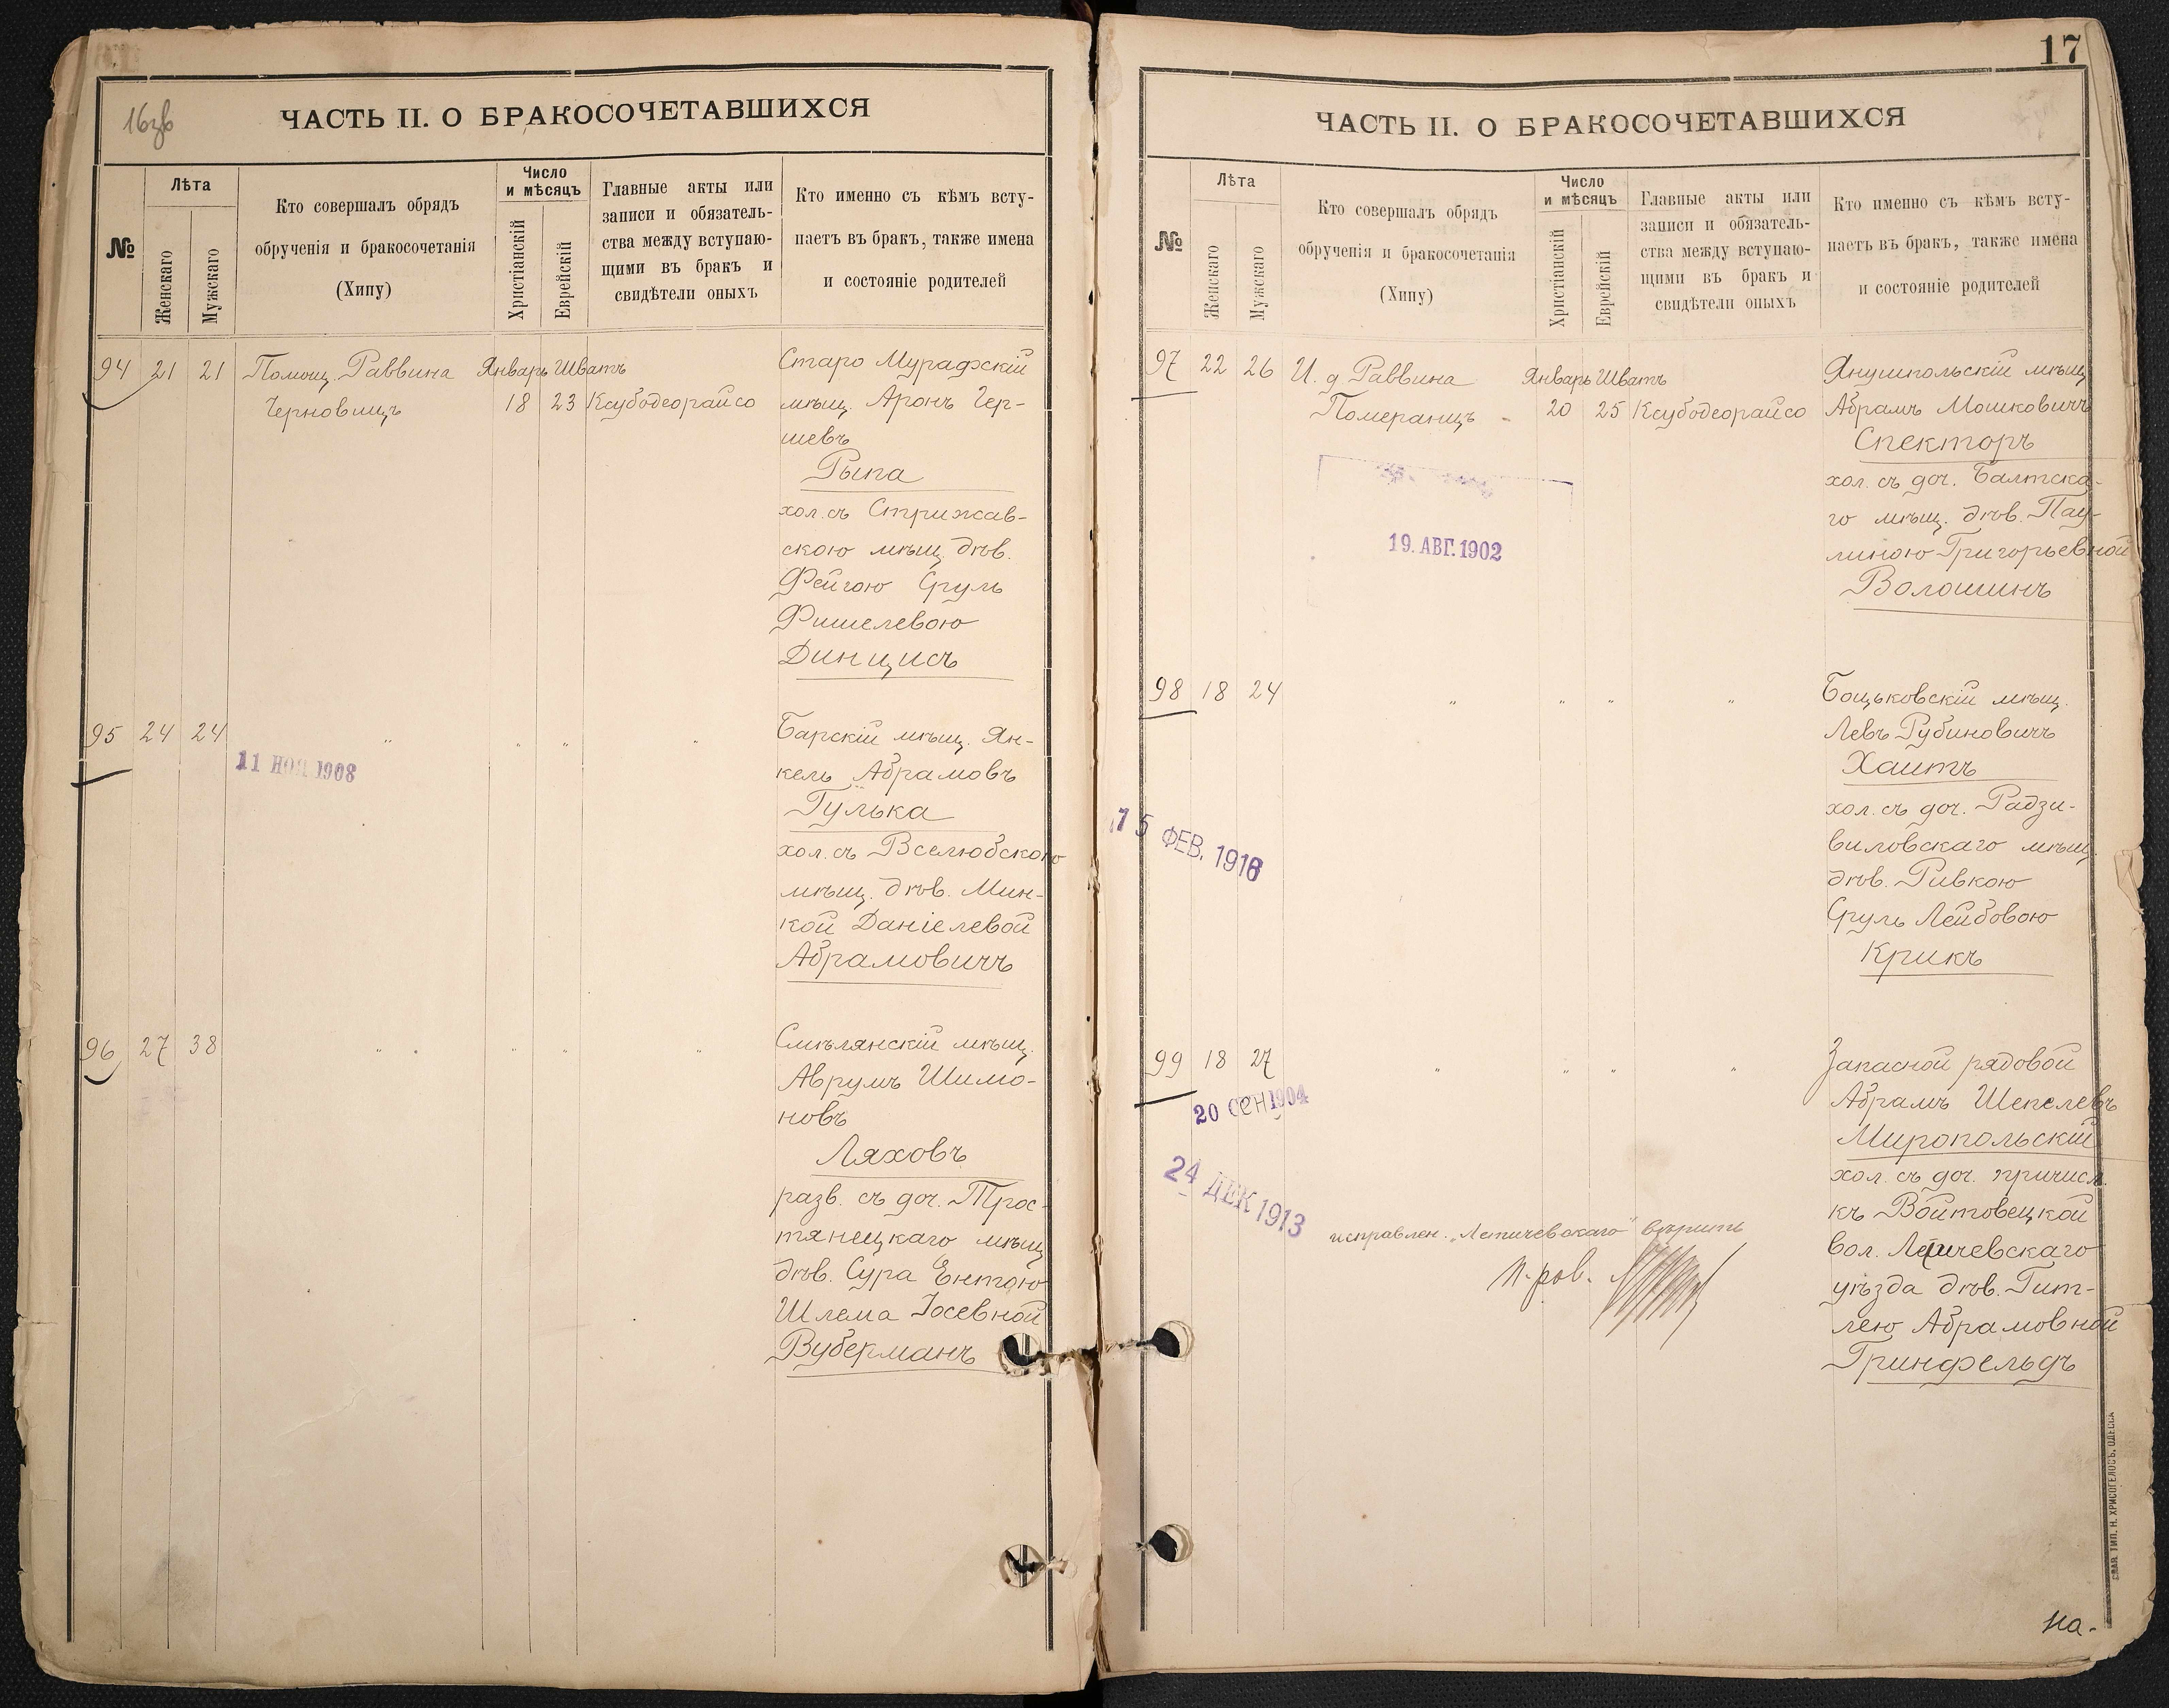 16зв
ЧАСТЬ II. О БРАКОСОЧЕТАВШИХСЯ
№
Лѣта
Женскаго
Мужскаго
Кто совершалъ обрядъ
обрученія и бракосочетанія
(Хипу)
Число
и мѣсяцъ
Христіанскій
Еврейскій
Главные акты или
записи и обязатель-
ства между вступаю-
щими въ бракъ и
свидѣтели оныхъ
Кто именно съ кѣмъ всту-
паетъ въ бракъ, также имена
и состояніе родителей
94 21 21 Помощ. Раввина Январь Шватъ Старо Мурафскій
Черновицъ 18 23 Ксубодеорайсо мѣщ. Аронъ Гер-
шевъ
Рыпа
хол. съ Стрижав-
скою мѣщ. дѣв.
Фейгою Сруль
Фишелевою
Динцисъ
95 24 24 " " " " Барскій мѣщ. Ян-
11 НОЯ 1908
кель Абрамовъ
Гулька
хол. съ Вселюбскою
мѣщ. дѣв. Мин-
кой Даніелевой
Абрамовичъ
96 27 38 " " " " Смѣлянскій мѣщ.
Аврумъ Шимо-
новъ
Ляховъ
разв. съ доч. Трос-
тянецкаго мѣщ.
дѣв. Сура Ентою
Шлема Іосевной
Вуберманъ
17
ЧАСТЬ II. О БРАКОСОЧЕТАВШИХСЯ
№
Лѣта
Женскаго
Мужскаго
Кто совершалъ обрядъ
обрученія и бракосочетанія
(Хипу)
Число
и мѣсяцъ
Христіанскій
Еврейскій
Главные акты или
записи и обязатель-
ства между вступаю-
щими въ бракъ и
свидѣтели оныхъ
Кто именно съ кѣмъ всту-
паетъ въ бракъ, также имена
и состояніе родителей
97 22 26 И. д. Раввина Январь Шватъ Янушпольскій мѣщ.
Померанцъ - 20 25 Ксубодеорайсо Абрамъ Мошковичъ
Спекторъ
хол. съ доч. Балтска-
го мѣщ. дѣв. Пау-
19. АВГ. 1902
линою Григорьевной
Волошинъ
98 18 24 " " " " Боцьковскій мѣщ.
Левъ Рубиновичъ
Хаитъ
хол. съ доч. Радзи-
15 ФЕВ. 1916
виловскаго мѣщ.
дѣв. Ривкою
Сруль Лейбовою
Крикъ
99 18 27 " " " " Запасной рядовой
20 СЕН 1904
Абрамъ Шепелевъ
Миропольскій
хол. съ доч. причисл.
24 ДЕК 1913
къ Войтовецкой
исправлен. „Летичевскаго" вѣрить
вол. Летичевскаго
уѣзда дѣв. Гит-
лею Абрамовной
Гринфельдъ
ТИП. Н. ХРИСОГЕЛОСЪ, ОДЕССА
На-